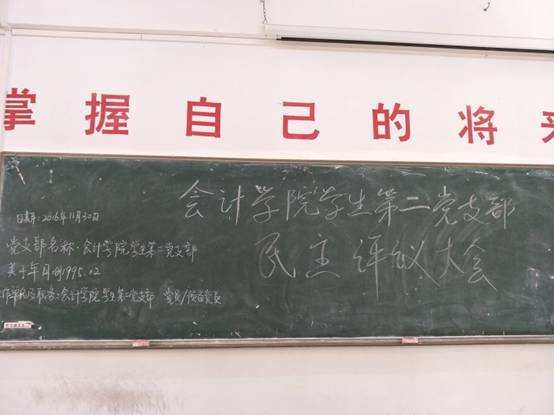 掌握自己的将来
会计学院学生第二党支部
民主评议大会
日期:2016年11月30日
党支部名称:会计学院学生第二党支部
1995.12
会计学院学生第二党支部 党员/预备党员